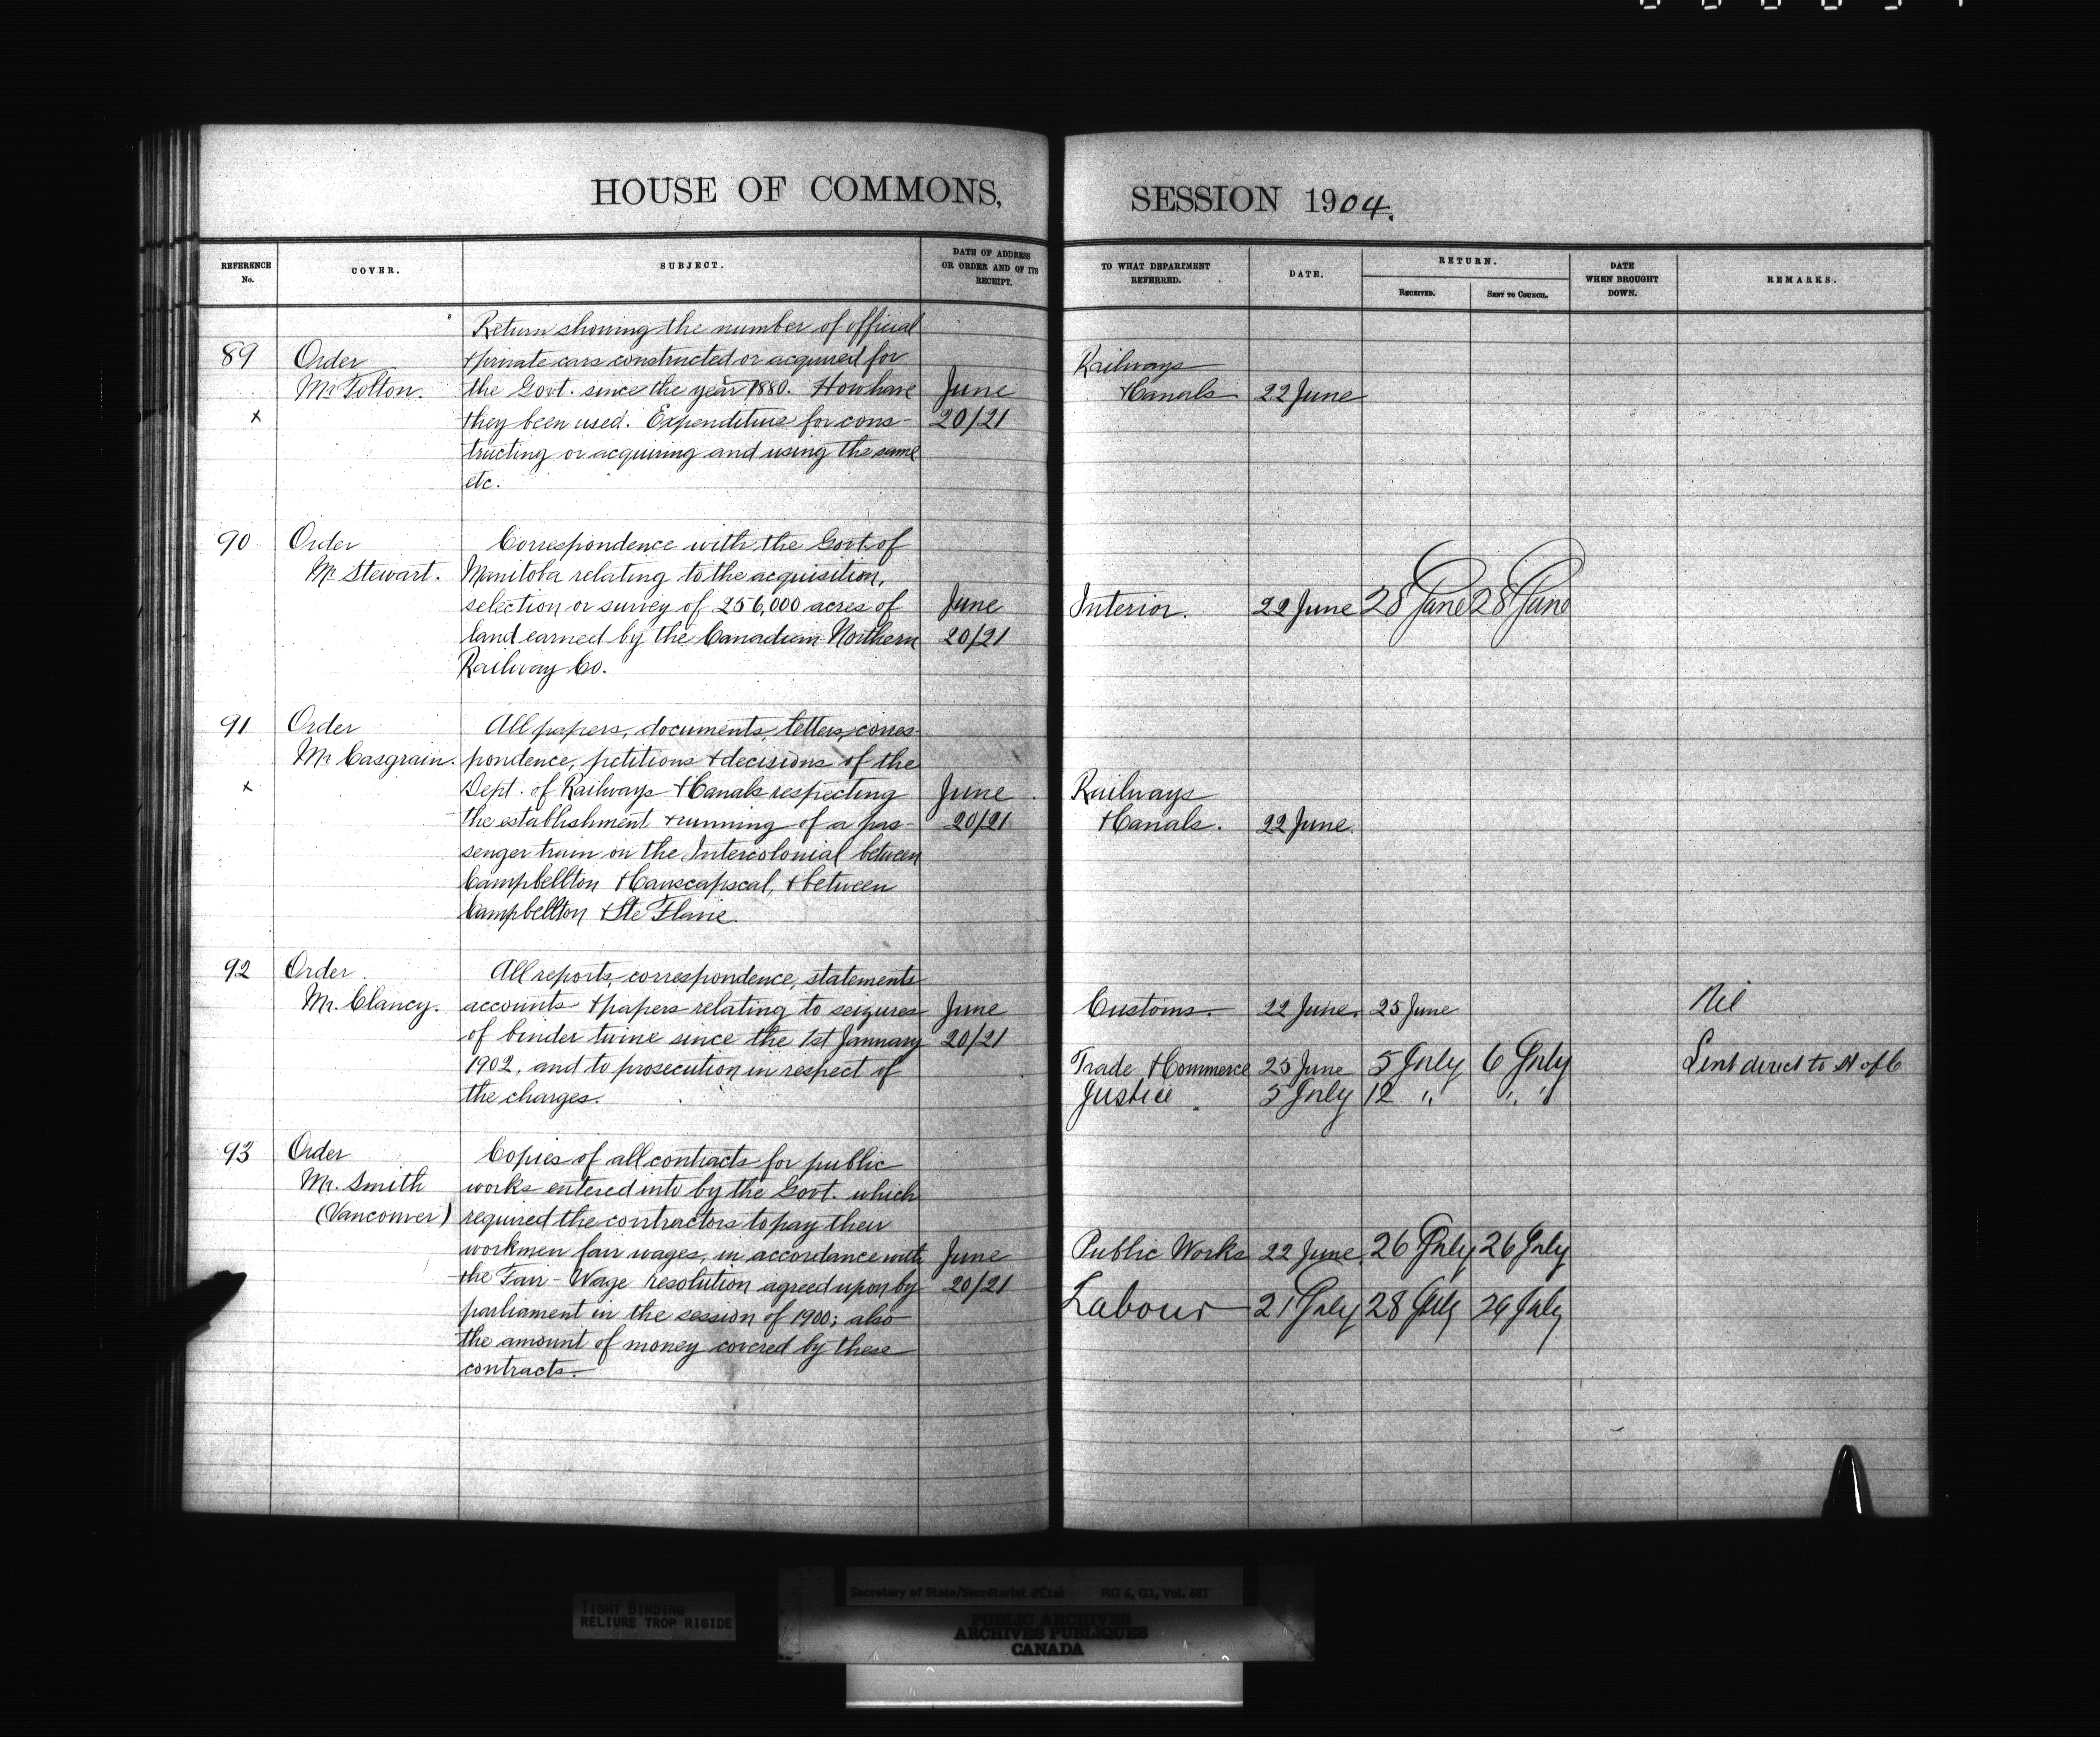 HOUSE OF COMMONS, SESSION 1904.
REFERENCE No. COVER. SUBJECT. DATE OF ADDRESS OR ORDER AND OF ITS RECEIPT. TO WHAT DEPARTMENT REFERRED. DATE. RETURN. RECEIVED. SENT TO COUNCIL. DATE WHEN BROUGHT DOWN. REMARKS.
Return showing the number of official
89 Order + private cars constructed or acquired for Railways
Mr Tolton. the Govt. since the year 1880. How have June + Canals 22 June
x they been used. Expenditure for cons- 20/21
tructing or acquiring and using the same
etc.
90 Order Correspondence with the Govt. of
Mr Stewart. Manitoba relating to the acquisition,
selection or survey of 256,000 acres of June Interior. 22 June 28 June 28 June
land earned by the Canadian Northern 20/21
Railway Co.
91 Order All papers, documents, letters, corres-
Mr Casgrain. pondence, petitions + decisions of the
x Dept. of Railways + Canals respecting June Railways
the establishment + running of a pas- 20/21 + Canals. 22 June.
senger train on the Intercolonial between
Campbellton + Causcapscal, + between
Campbellton + Ste Flavie.
92 Order. All reports, correspondence, statements
Mr. Clancy. accounts + papers relating to seizures June Customs. 22 June. 25 June Nil
of binder twine since the 1st January 20/21
1902, and to prosecution in respect of Trade + Commerce 25 June 5 July 6 July Sent direct to H of C
the charges. Justice. 5 July 12 " " "
93 Order Copies of all contracts for public
Mr. Smith works entered into by the Govt. which
(Vancouver) required the contractors to pay their
workmen fair wages, in accordance with June Public Works 22 June 26 July 26 July
the Fair-Wage resolution agreed upon by 20/21 Labour 21 July 28 July 29 July
parliament in the session of 1900; also
the amount of money covered by these
contracts.
Secretary of State/Secrétariat d'État RG 6, G1, Vol. 681
TIGHT BINDING
RELIURE TROP RIGIDE
PUBLIC ARCHIVES
ARCHIVES PUBLIQUES
CANADA